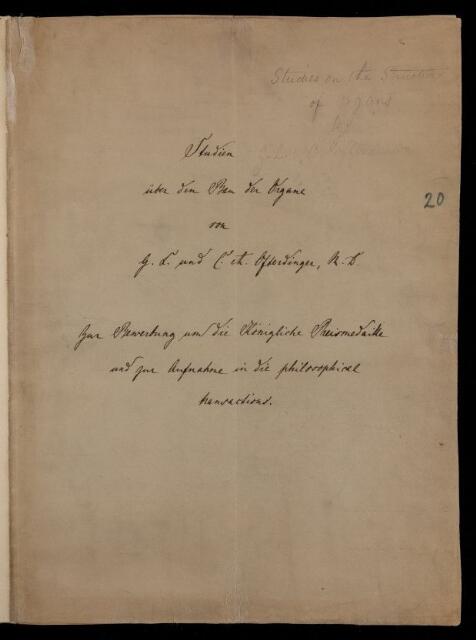 Studies on the Structure
of Organs
by
Studien
über den Bau der Organe
von
G. L. und C. A. Ofterdinger, M. D.
20
Zur Bewerbung um die Königliche Preismedaille
und zur Aufnahme in die philosophical
transactions.